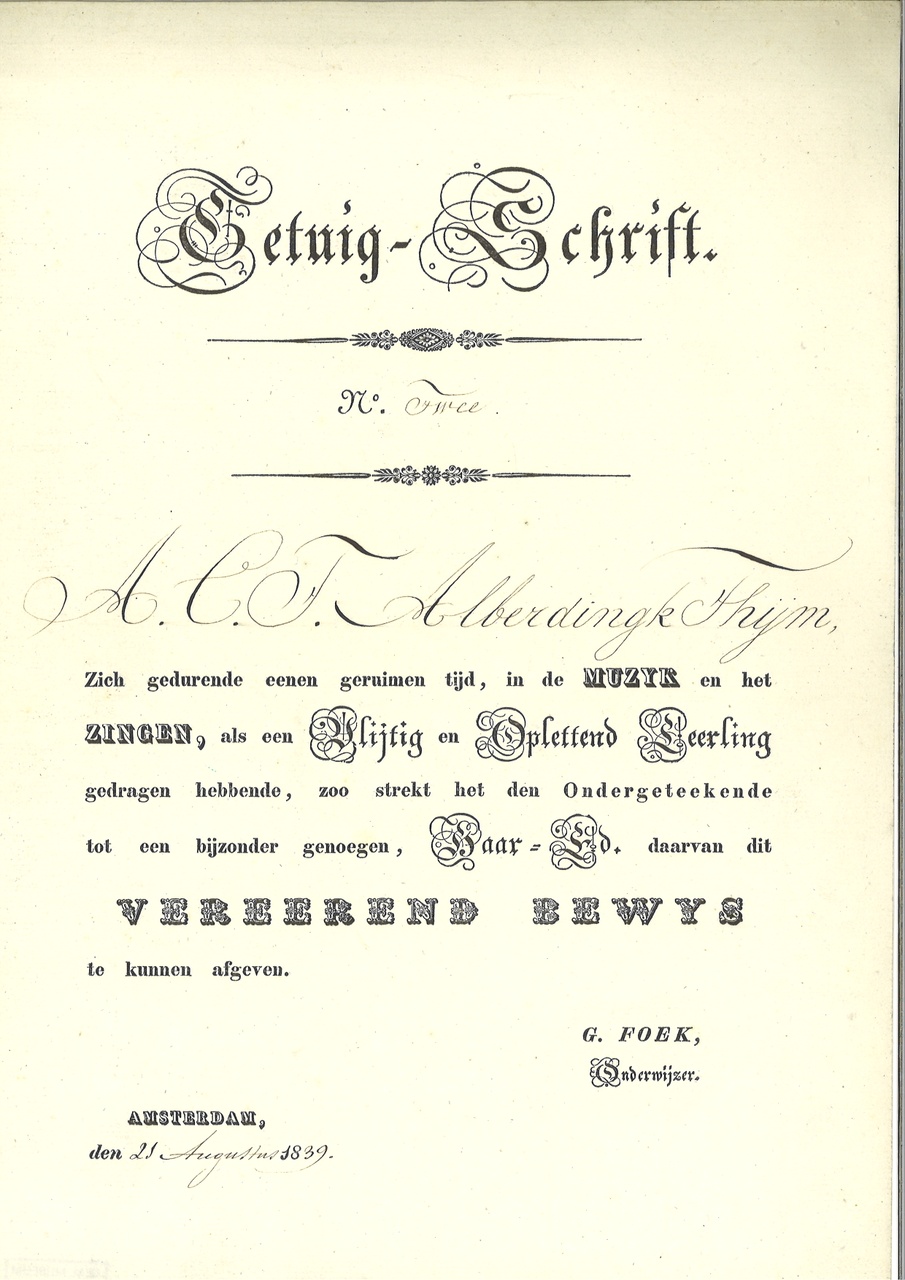 Getuig-Schrift.
Nº. Twee.
A. C. T. Alberdingk Thijm,
Zich gedurende eenen geruimen tijd, in de MUZYK en het
ZINGEN, als een Vlijtig en Oplettend Leerling
gedragen hebbende, zoo strekt het den Ondergeteekende
tot een bijzonder genoegen, Haar-Ed. daarvan dit
VEREEREND BEWYS
te kunnen afgeven.
G. FOEK,
Onderwijzer.
AMSTERDAM,
den 21 Augustus 1839.